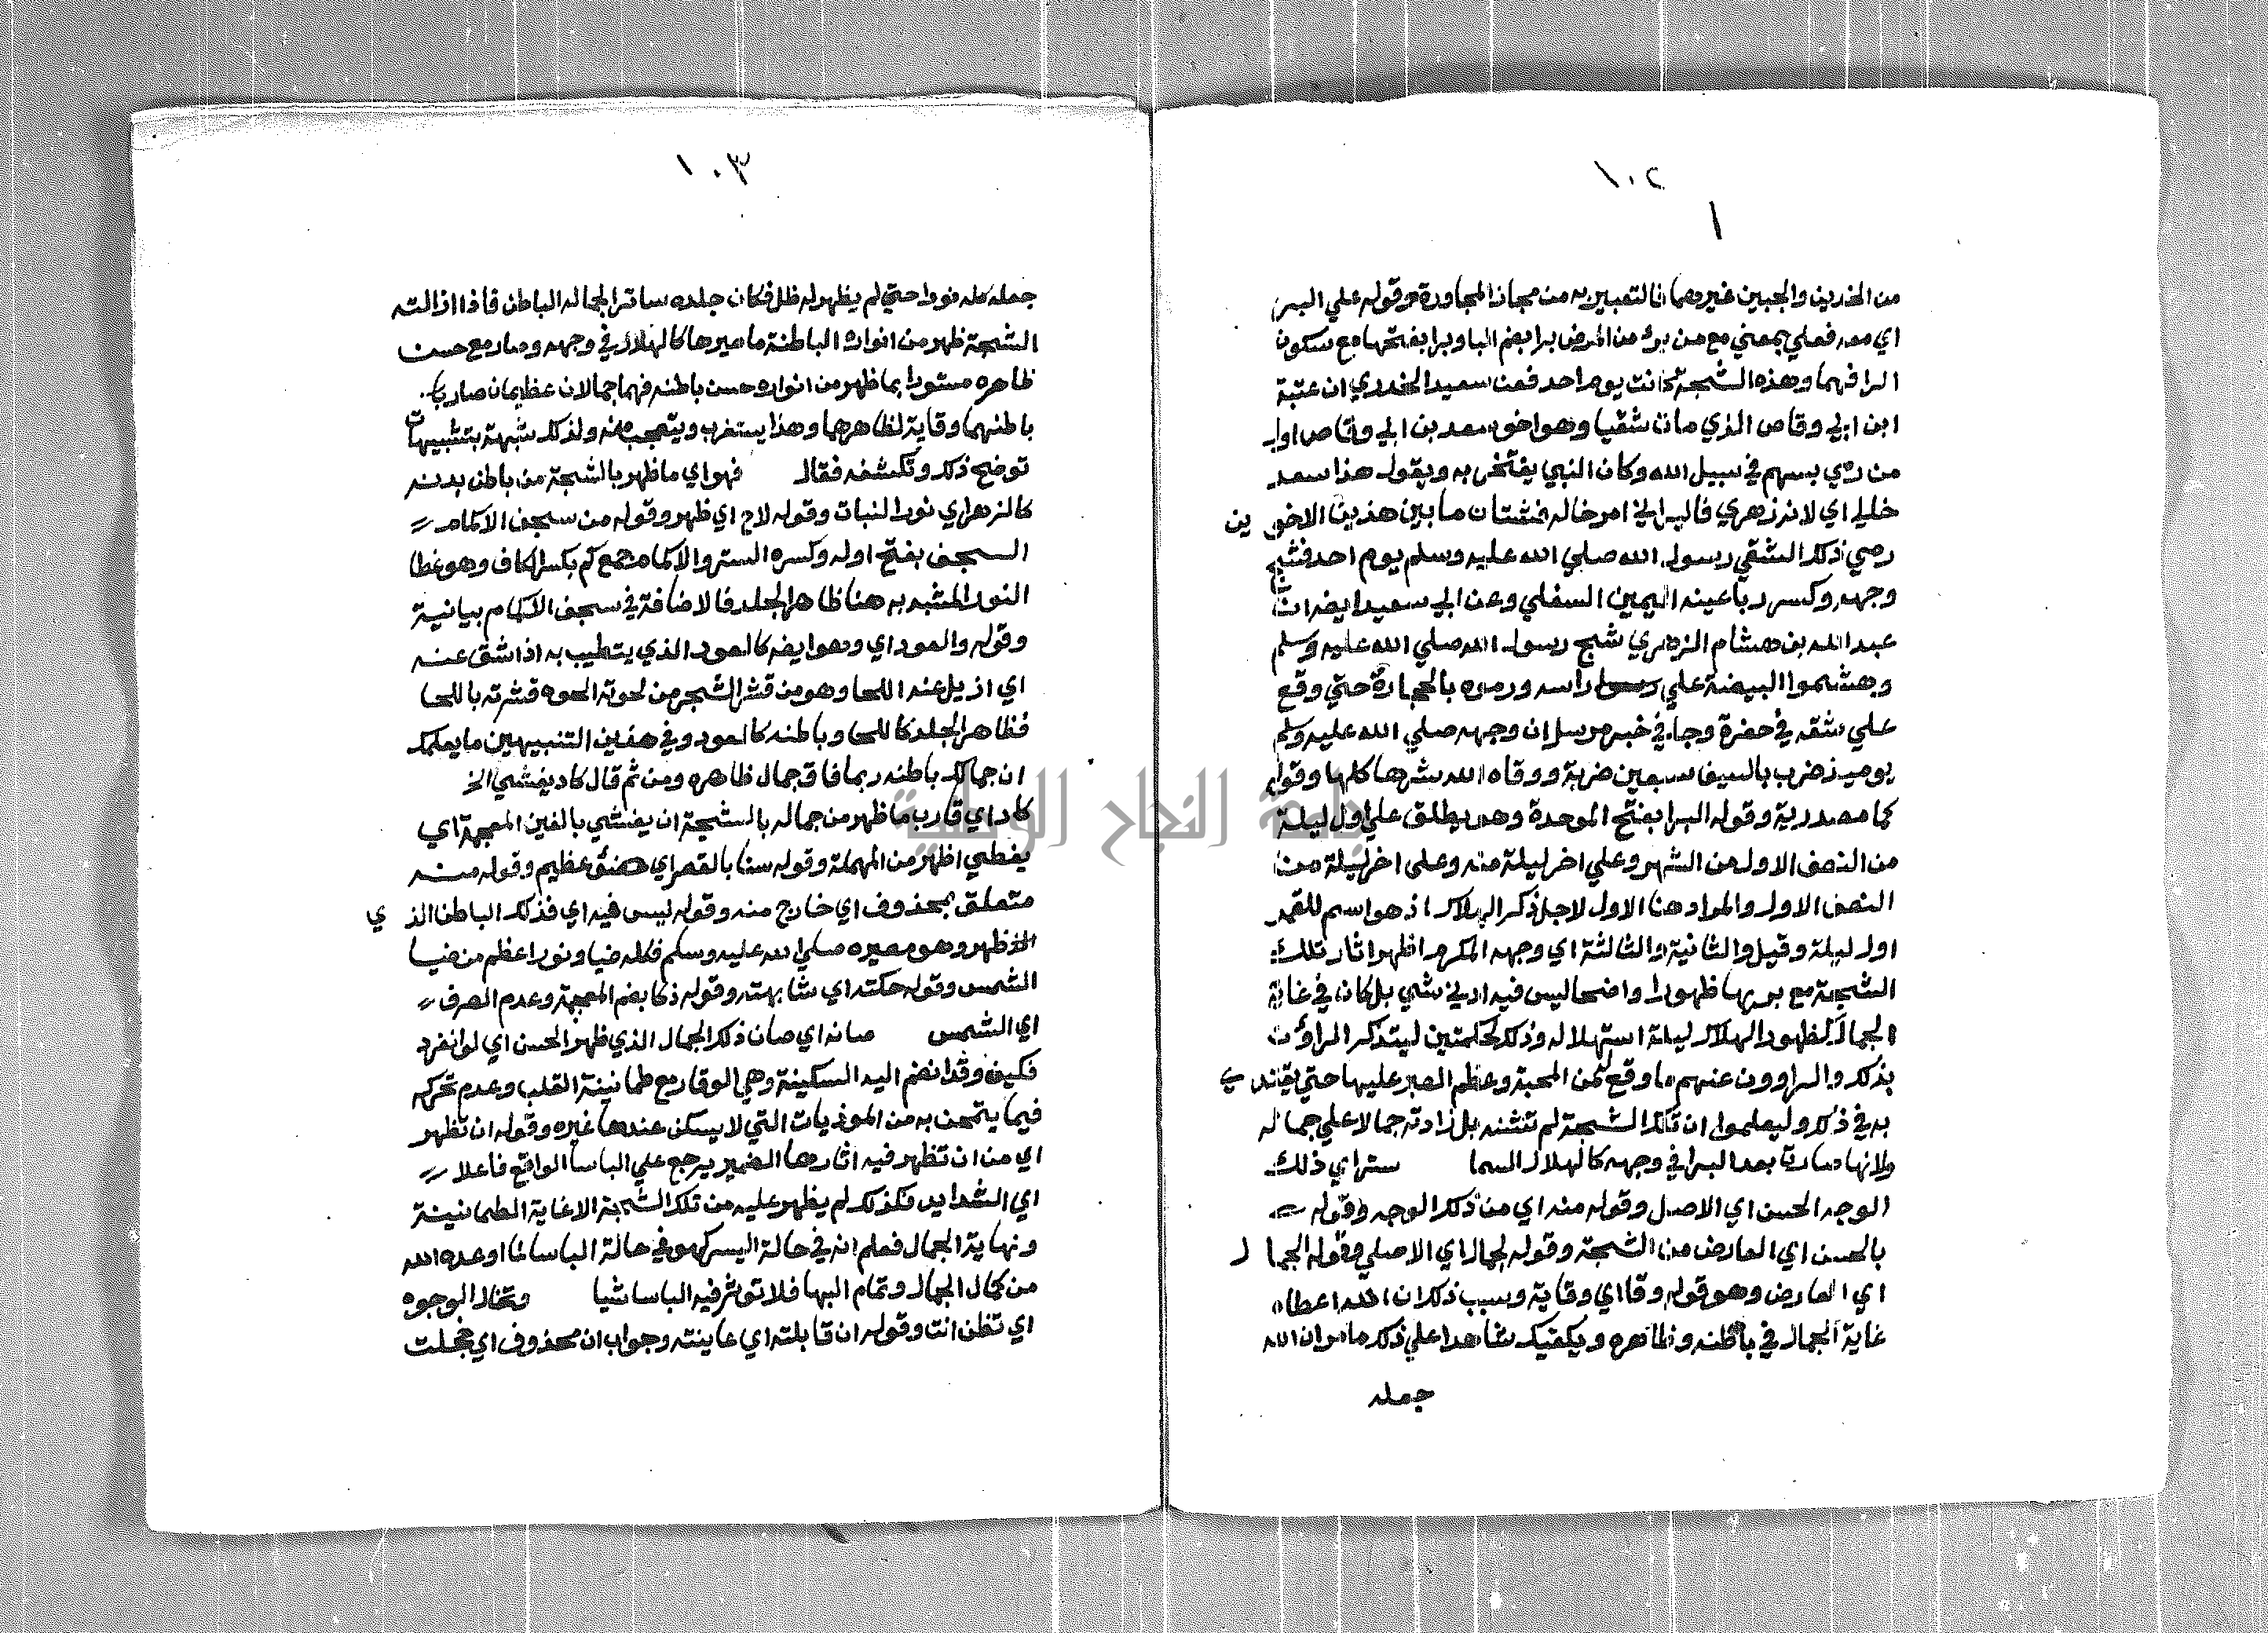 ١٠٢
من الخدين والجبين غيرهما فالتعبير به من مجاز المجاورة وقوله علي البر
اي معه فعلي بمعني مع من برء من المرض برا بضم البا وبرا بفتحها مع سكون
الرا فيهما وهذه الشجة كانت يوم احد فعن سعيد الخدري ان عتبة
ابن ابي وقاص الذي مات شقيا وهو اخو سعد بن ابي وقاص اول
من رمي بسهم في سبيل الله وكان النبي يفتخر به ويقول هذا سعد
خليلي اي لانه زهري فالبر الي امر خاله فشتان ما بين هذين الاخوين
رمي ذلك الشقي رسول الله صلي الله عليه وسلم يوم احد فشج
وجهه وكسر رباعيته اليمين السفلي وعن ابي سعيد ايضا ان
عبد الله بن هشام الزهري شج رسول الله صلي الله عليه وسلم
وهشموا البيضة علي راسه ورموه بالحجارة حتي وقع
علي شقه في حفرة وجاء في خبر مرسل ان وجهه صلي الله عليه وسلم
يوميذ ضرب بالسيف سبعين ضربة ووقاه الله شرها كلها وقوله
كما مصدرية وقوله البرا بفتح الموحدة وهو يطلق علي اول ليلة
من النصف الاول من الشهر وعلي اخر ليلة منه وعلى اخر ليلة من
النصف الاول والمراد هنا الاول لاجل ذكر الهلال اذ هو اسم للقمر
اول ليلة وقيل والثانية والثالثة اي وجهه المكرم اظهر اثار تلك
الشجة مع بريها ظهورا واضحا ليس فيه ادني شي بل كان في غاية
الجمال كظهور الهلال ليلة استهلاله وذلك لحكمتين ليتذكر المراؤن
بذلك والراوون عنهم ما وقع لهم من المحبة وعظم الصبر عليها حتي يقتدي
به في ذلك وليعلموا ان تلك الشجة لم تشنه بل زادته جمالا علي جماله
ولانها صارت بعد البرا في وجهه كالهلال السما ستر اي ذلك
الوجه الحسن اي الاصل وقوله منه اي من ذلك الوجه وقوله
بالحسن اي العارض من الشجة وقوله لجمال اي الاصلي وقوله الجمال
اي العارض وهو قوله وقا اي وقاية وسبب ذلك ان الله اعطاه
غاية الجمال في باطنه وظاهره ويكفيك شاهدا علي ذلك ما مر ان الله
جعله
١٠٣
جعله كله نورا حتي لم يظهر له ظل فكان جلده ساتر الجماله الباطن فاذا ازالته
الشجة ظهر من انواره الباطنة ما صيرها كالهلال في وجهه وصار مع حسن
ظاهره مستورا بما ظهر من انواره حسن باطنه فهما جمالان عظيمان صار با
باطنهما وقاية لظاهرهما وهذا يستغرب ويتعجب منه ولذلك شبهه بتشبيهات
توضح ذلك وتكشفه فقال فهو اي ما ظهر بالشجة من باطن بدنه
كالزهر اي نور النبات وقوله لاح اي ظهر وقوله من سجف الاكمام
السجف بفتح اوله وكسره الستر والاكمام جمع كم بكسر الكاف وهو غطا
النور المشبه به هنا ظاهر الجلد فالاضافة في سجف الاكمام بيانية
وقوله والعود اي وهو ايضا كالعود الذي يتطيب به اذا شق عنه
اي ازيل عنه اللحا وهو من قشر الشجر من لحوته الحوه قشرته باللحا
فظاهر الجلد كاللحا وباطنه كالعود وفي هذين التنبيهين ما يعلمك
ان جمالك باطنه ربما فاق جمال ظاهره ومن ثم قال كاد يغشي الخ
كاد اي قارب ما ظهر من جماله بالشجة ان يغشي بالغين المعجمة اي
يغطي اظهر من المهملة وقوله سنا بالقصر اي ضئ عظيم وقوله منه
متعلق بمحذوف اي خارج منه وقوله ليس فيه اي فذلك الباطن الذي
ظهر وهو مصيره صلي الله عليه وسلم فكله ضيا ونور اعظم من ضيا
الشمس وقوله حكته اي شابهته وقوله ذكا بضم المعجمة وعدم الصرف
اي الشمس صانه اي صان ذلك الجمال الذي ظهر الحسن اي لو انفرد
فكيف وقد انضم اليه السكينة وهي الوقار مع طمانينة القلب وعدم تحركه
فيما يتمحن به من الموذيات التي لا يسكن عندها غيره وقوله ان تظهر
اي من ان تظهر فيه اثارها الضمير يرجع علي الباسا الواقع فاعلا
اي الشدايد فكذلك لم يظهر عليه من تلك الشجة الا غاية الطمانينة
ونهاية الجمال فعلم انه في حالة اليسر كهو في حالة الباسا لما اوعده الله
من كمال الجمال وتمام البها فلا توثر فيه الباسا شيا وتخال الوجوه
اي تظن انت وقوله ان قابلته اي عاينته وجواب ان محذوف اي خجلت
جامعة النجاح الوطنية